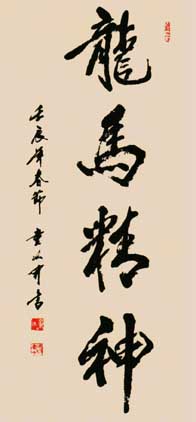 龍馬精神
壬辰年春節